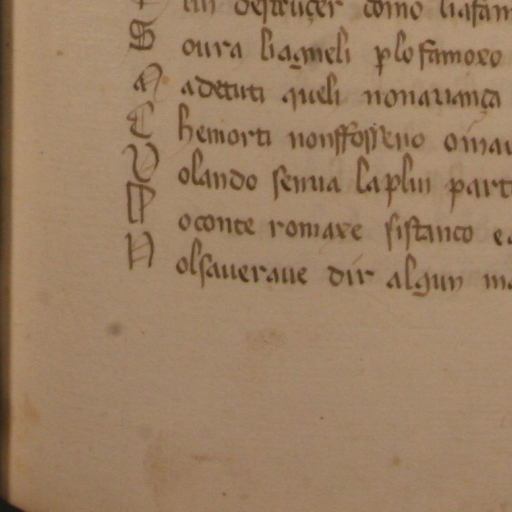 lui destruçer como liafam
S oura liaqueli plo famoxo
A adetuti queli nonauança
C hemorti nonffosseno omau
V olando senua laplui part
P oconte romaxe sistanco e
N olsaueraue dir alqun m